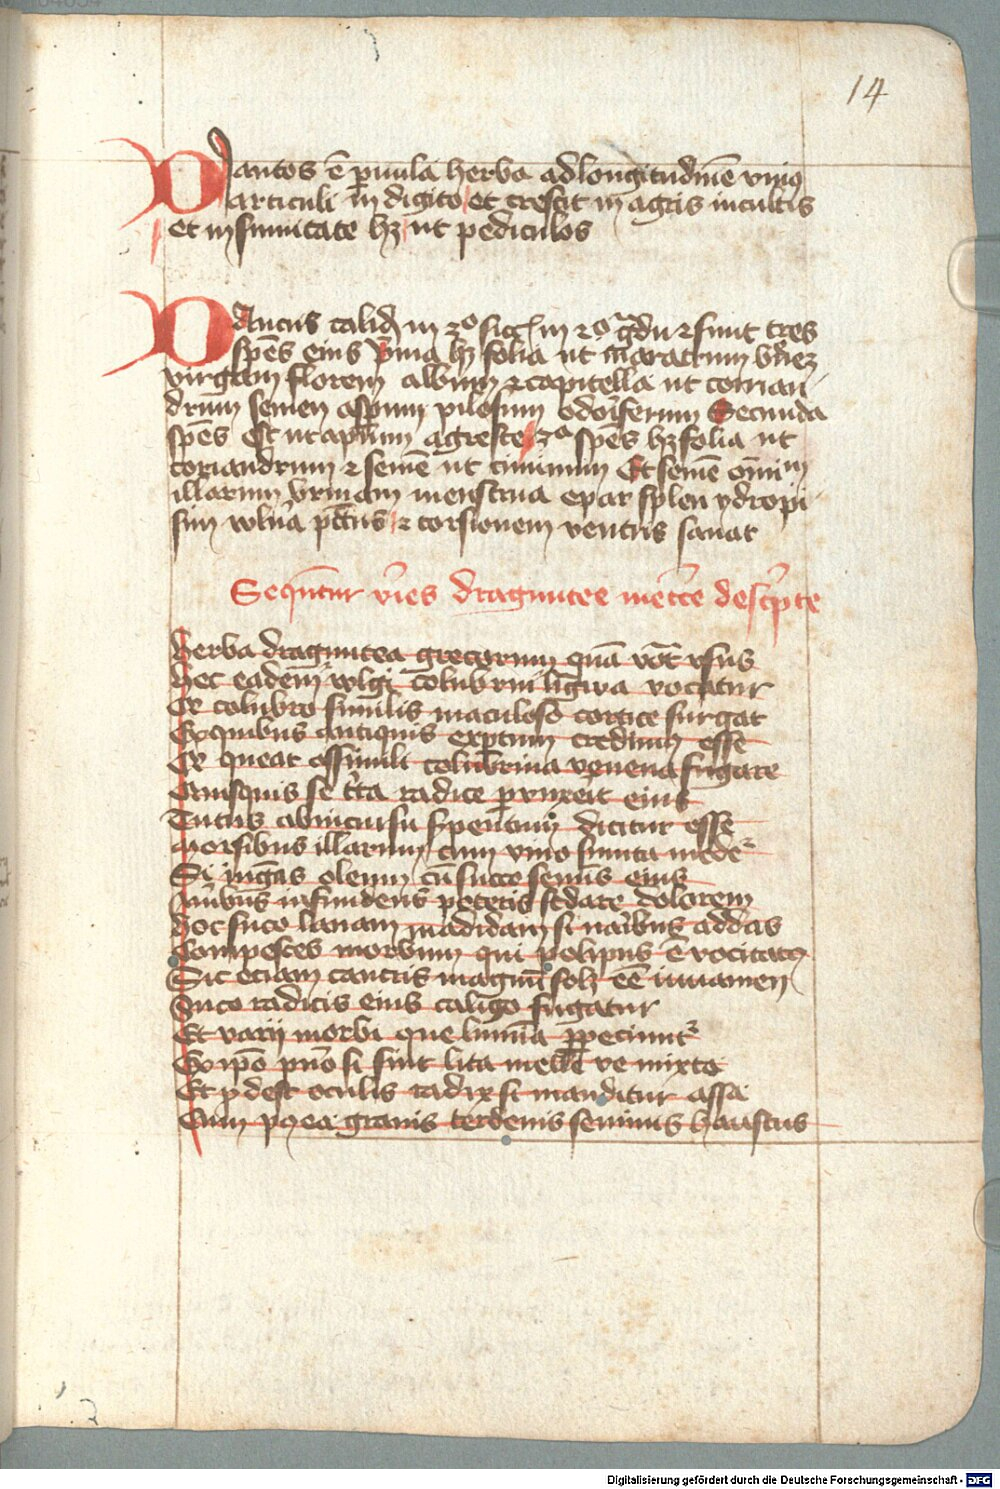 14
Dantos ē puula herba ad longitudinē vniꝰ
articuli in digito et crescit in agris incultis
et in sumitate hꝫ ut pediculos
Daucus calidꝰ in 2º siccꝰ in 2º gͣdu ⁊ sunt tres
spēs eius pͥma hꝫ folia ut maratrum
virgam florem album ⁊ capitella ut corian
drum semen aspum pilosum odoriferum Secunda
spēs est ut apium agreste 3ª spēs hꝫ folia ut
coriandrum ⁊ semē ut ciminum Et semē omīm
illarum vrinam menstrua epar splen ydropi
sim vulnͣa pctus ⁊ torsionem ventris sanat
Sequntur vͥses draguntee metce descͥpte
Herba draguntea grecorum quā vocͣt vsus
Hec eadem vulgi colubrina ligwa vocatur
Qr colubro similis maculoso cortice surgat
Ex quibus antiquis exptum credimꝰ esse
Qr queat assimili colubrina venena fugare
Quisquis se tͥta radice pervnxerit eius
Tutus ab incursu serpentum dicitur esse
Morsibus illarum cum vino sumta medeͬ
Si iungas oleum cū succo semīs eius
Auribus infundens poteris sedare dolorem
Hoc suco lanam madidam si naribus addas
Compesces morbum qui polipus ē vocitatus
Sic etiam cancris magnū solꝫ eē iuuamen
Suco radicis eius caligo fugatur
Et varij morbi que lumīa
Ex ipo pͥmo si sint lita melle ve mixto
Et pdest oculis radix si manditur assa
Cum posca granis terdenis seminis haustus
Digitalisierung gefördert durch die Deutsche Forschungsgemeinschaft - DFG